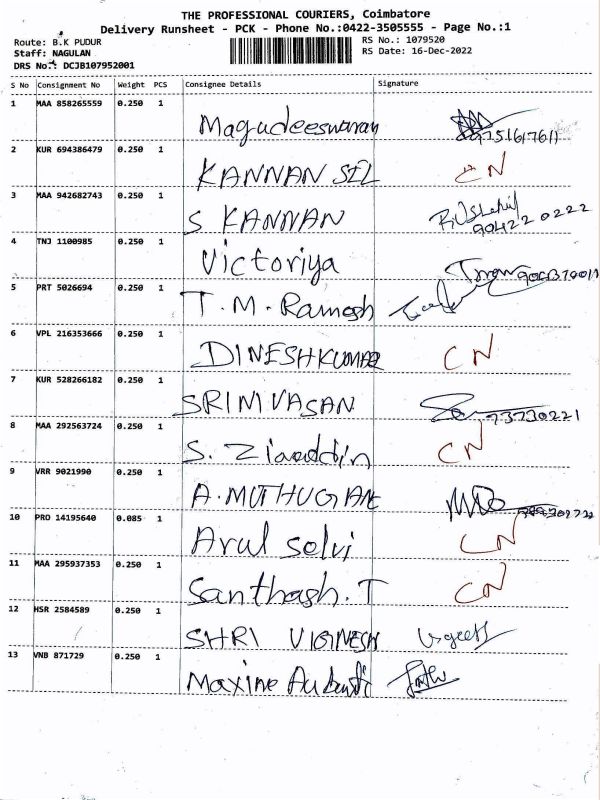 THE PROFESSIONAL COURIERS, Coimbatore
Delivery Runsheet - PCK - Phone No.:0422-3505555 - Page No.:1
Route: B.K PUDUR RS No.: 1079520
Staff: NAGULAN RS Date: 16-Dec-2022
DRS No.: DCJB107952001
S No Consignment No Weight PCS Consignee Details Signature
1 MAA 858265559 0.250 1 Magudeeswaran
2 KUR 694386479 0.250 1 KANNAN SIL CN
3 MAA 942682743 0.250 1 S KANNAN 904220222
4 TNJ 1100985 0.250 1 Victoriya
5 PRT 5026694 0.250 1 T.M.Ramesh
6 VPL 216353666 0.250 1 DINESHKUMAR CN
7 KUR 528266182 0.250 1 SRINIVASAN
8 MAA 292563724 0.250 1 S. Ziauddin CN
9 VRR 9021990 0.250 1 A.MUTHUGANE
10 PRO 14195640 0.085 1 Arul selvi CN
11 MAA 295937353 0.250 1 Santhosh.T CN
12 HSR 2584589 0.250 1 SHRI VIGINESH
13 VNB 871729 0.250 1 Maxine